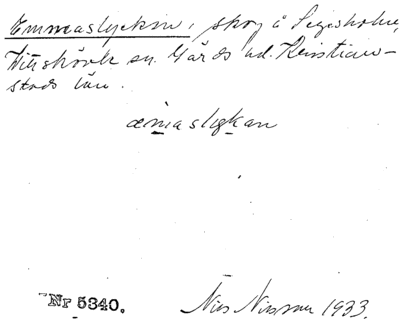 Emmaslyckan, skog å Segesholm,
Vittskövle sn. Gärds hd. Kristian-
stads län.
æmasligkan
Nr 5340.
Nils Nilsson 1933.